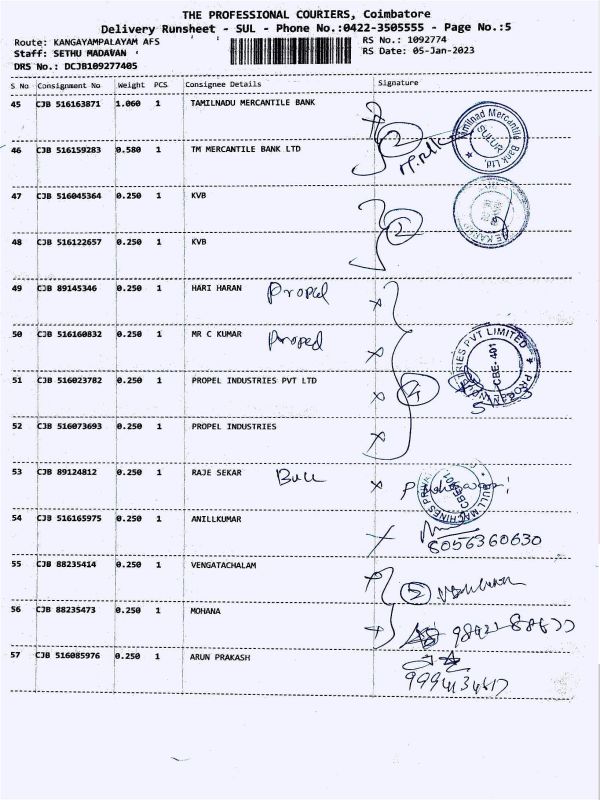 THE PROFESSIONAL COURIERS, Coimbatore
Delivery Runsheet - SUL - Phone No.:0422-3505555 - Page No.:5
Route: KANGAYAMPALAYAM AFS RS No.: 1092774
Staff: SETHU MADAVAN RS Date: 05-Jan-2023
DRS No.: DCJB109277405
S No Consignment No Weight PCS Consignee Details Signature
45 CJB 516163871 1.060 1 TAMILNADU MERCANTILE BANK
2
Tamilnad Mercantile Bank Ltd, SULUR
46 CJB 516159283 0.580 1 TM MERCANTILE BANK LTD
47 CJB 516045364 0.250 1 KVB
2
48 CJB 516122657 0.250 1 KVB
49 CJB 89145346 0.250 1 HARI HARAN Propel
50 CJB 516160832 0.250 1 MR C KUMAR Propel
CBE-401
51 CJB 516023782 0.250 1 PROPEL INDUSTRIES PVT LTD
4
52 CJB 516073693 0.250 1 PROPEL INDUSTRIES
53 CJB 89124812 0.250 1 RAJE SEKAR Bull
BULL MACHINES
54 CJB 516165975 0.250 1 ANILLKUMAR
8056360630
55 CJB 88235414 0.250 1 VENGATACHALAM
2
56 CJB 88235473 0.250 1 MOHANA
57 CJB 516085976 0.250 1 ARUN PRAKASH